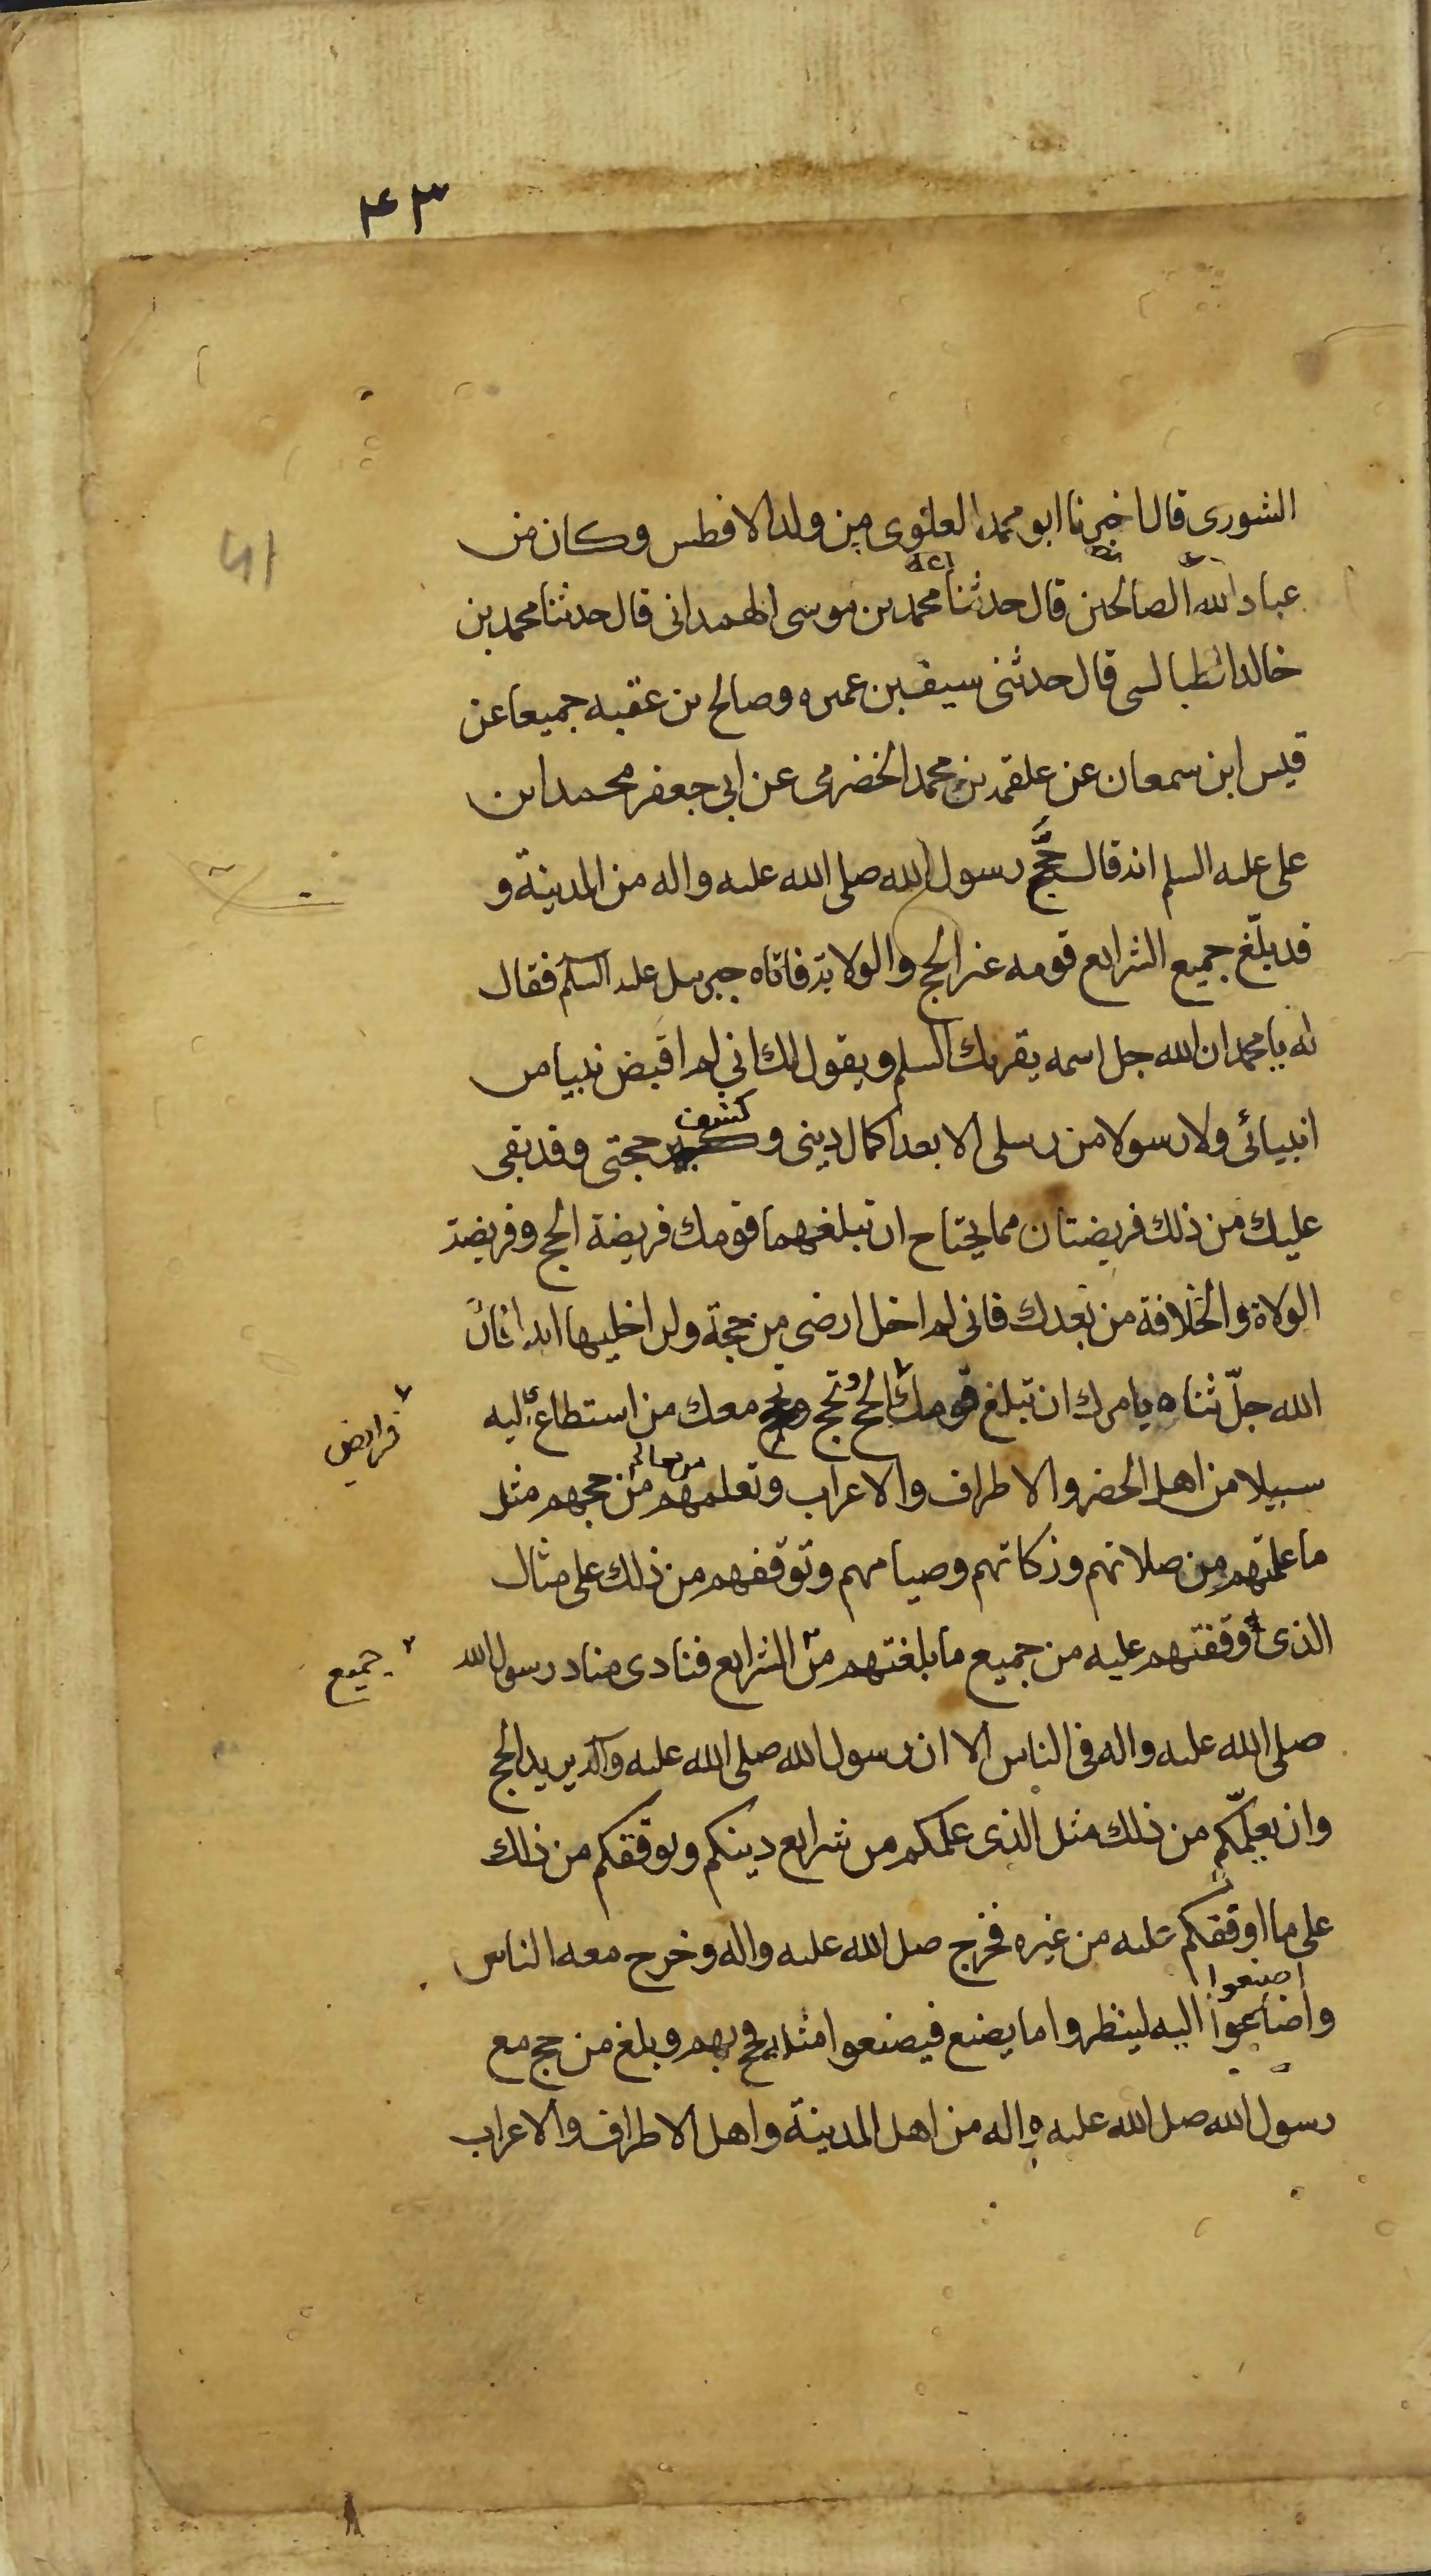 ۴۳
الشورى قال اخبرنا ابو محمد العلوى من ولد الافطس وكان من
عباد الله الصالحين قال حدثنا محمد بن موسى الهمدانى قال حدثنا محمد بن
خالد الطيالسى قال حدثنى سيف بن عميره وصالح بن عقبه جميعا عن
قيس ابن سمعان عن علقمه بن محمد الخضرمى عن ابى جعفر محمد ابن
على عليه السلم انه قال حجّ رسول الله صلى الله عليه واله من المدينة و
قد بلّغ جميع الشرايع قومه غير الحج والولاية فاتاه جبرييل عليه السلم فقال
له يا محمد ان الله جل اسمه يقريك السلم ويقول لك انى لم اقبض نبيا من
انبيائى ولا رسولا من رسلى الا بعد اكمال دينى و كشف حجتى وقد بقى
عليك من ذلك فريضتان مما يحتاج ان تبلغهما قومك فريضة الحج وفريضة
الولاة والخلافة من بعدك فانى لم اخل ارضى من حجة ولن اخليها ابدا فانّ
الله جلّ ثناه يامرك ان تبلغ قومك الحج وتحج معك من استطاع اليه
فرايض
سبيلا من اهل الحضر والاطراف والاعراب وتعلمهم من حجهم مثل
من معالم
ما علمتهم من صلاتهم وزكاتهم وصيامهم وتوقفهم من ذلك على مثال
الذى اوقفتهم عليه من جميع ما بلغتهم من الشرايع فنادى مناد رسول الله
جميع
صلى الله عليه واله فى الناس الا ان رسول الله صلى الله عليه واله يريد الحج
وان يعلّمكم من ذلك مثل الذى علمكم من شرايع دينكم ويوقفكم من ذلك
على ما اوقفكم عليه من غيره فخرج صلى الله عليه واله وخرج معه الناس
اصنعوا
واصاغوا اليه لينظروا ما يصنع فيصنعوا مثله فحج بهم وبلغ من حج مع
رسول الله صلى الله عليه واله من اهل المدينة واهل الاطراف والاعراب